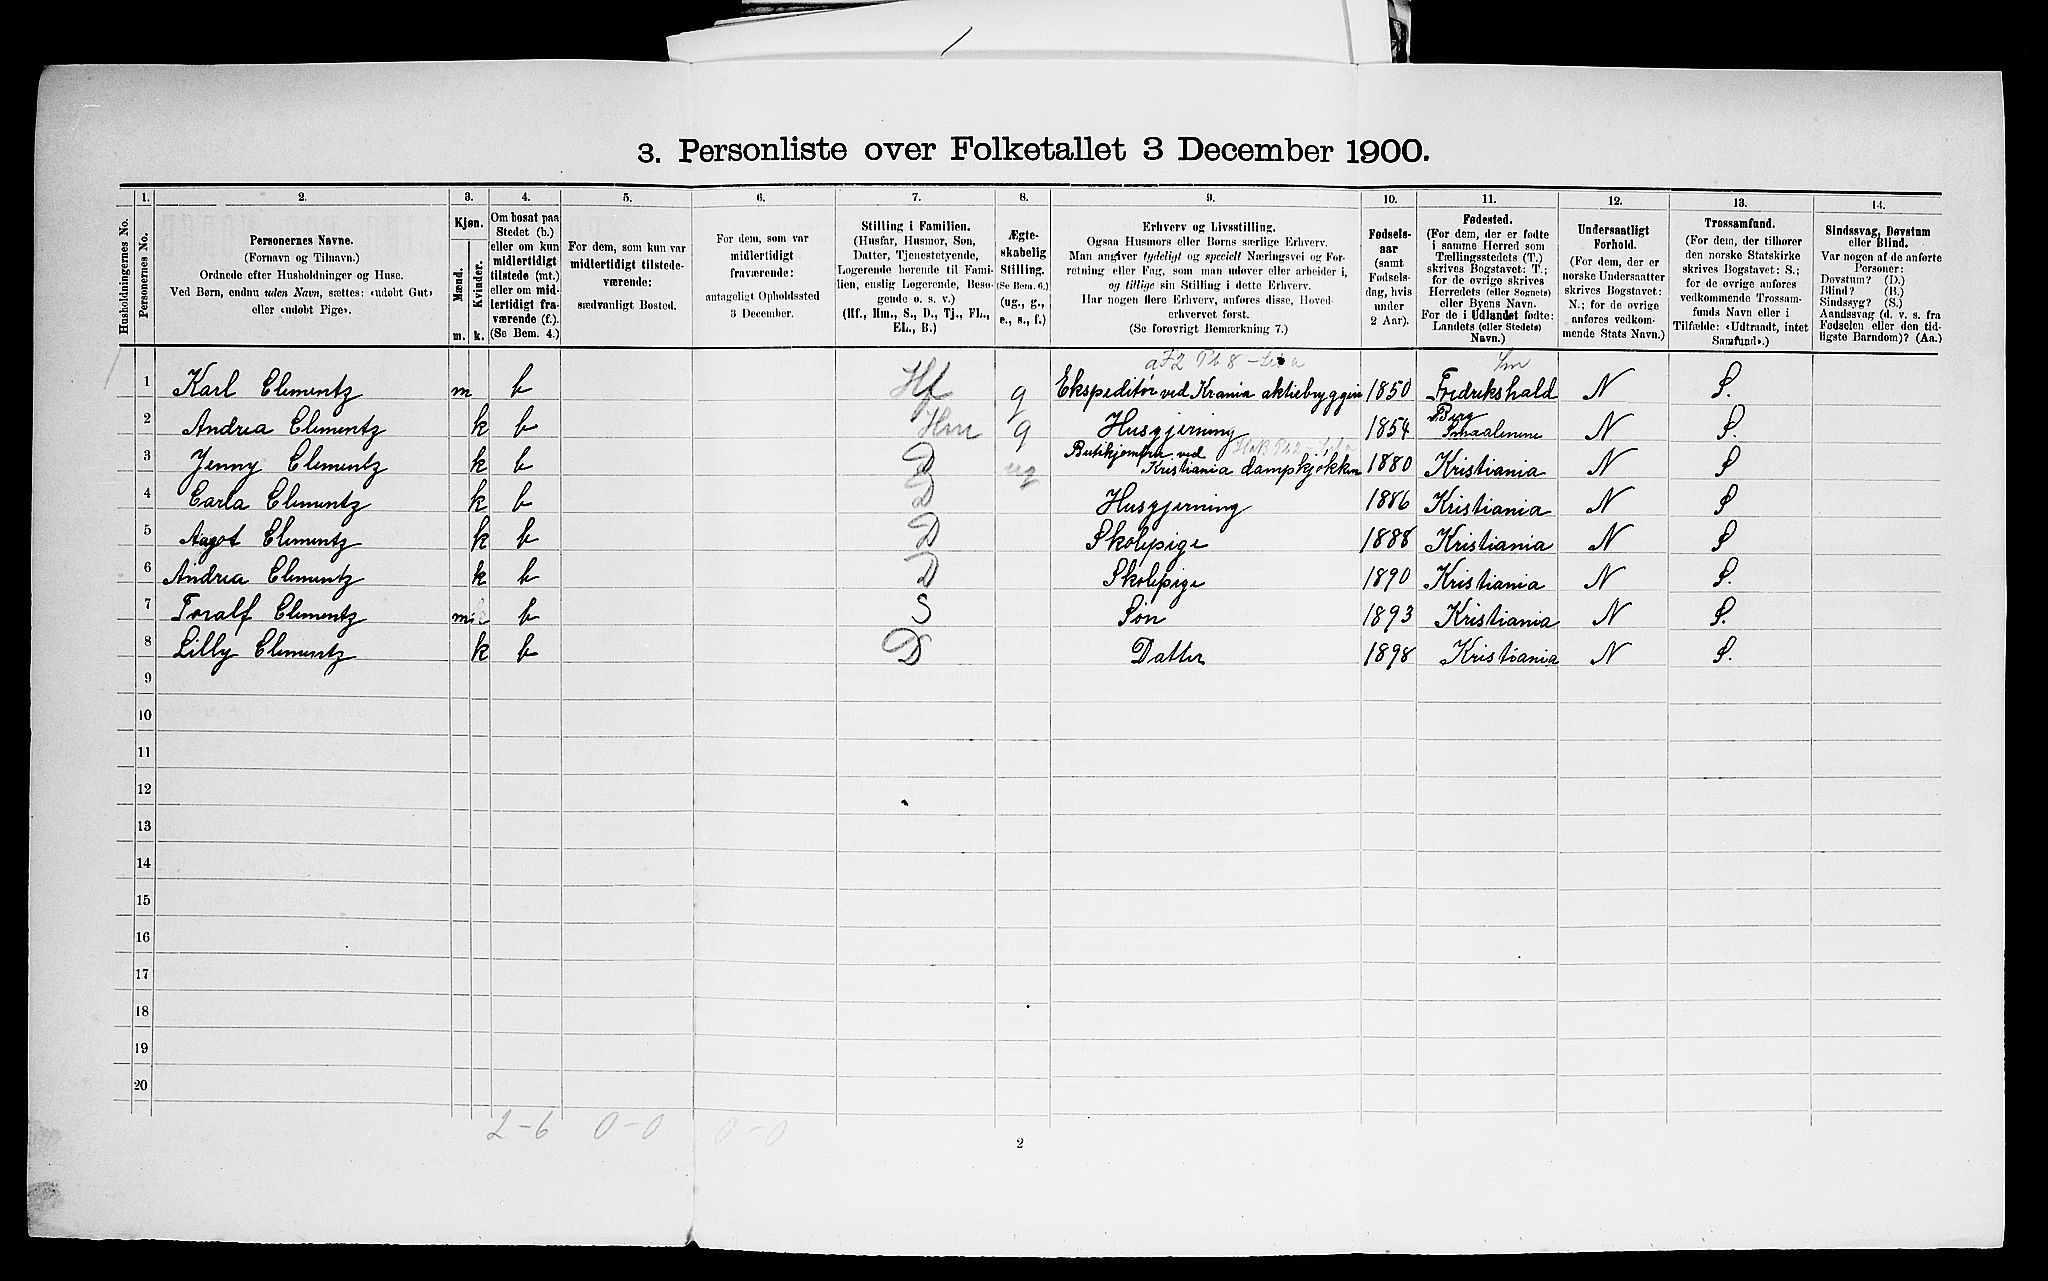 3. Personliste over Folketallet 3 December 1900.
Husholdningernes No.
1.
Personernes No.
2.
Personernes Navne.
(Fornavn og Tilnavn.)
Ordnede efter Husholdninger og Huse.
Ved Børn, endnu uden Navn, sættes: «udøbt Gut»
eller «udøbt Pige».
3.
Kjøn.
Mænd.
Kvinder.
m.
k.
4.
Om bosat paa
Stedet (b.)
eller om kun
midlertidigt
tilstede (mt.)
eller om mid-
lertidigt fra-
værende (f.).
(Se Bem. 4.)
5.
For dem, som kun var
midlertidigt tilstede-
værende:
sædvanligt Bosted.
6.
For dem, som var
midlertidigt
fraværende:
antageligt Opholdssted
3 December.
7.
Stilling i Familien.
(Husfar, Husmor, Søn,
Datter, Tjenestetyende,
Logerende hørende til Fami-
lien, enslig Logerende, Besø-
gende o. s. v.)
(Hf., Hm., S., D., Tj., FL.,
EL., B.)
8.
Ægte-
skabelig
Stilling.
(Se Bem. 6.)
(ug., g.,
e., s., f.)
9.
Erhverv og Livsstilling.
Ogsaa Husmors eller Børns særlige Erhverv.
Man angiver tydeligt og specielt Næringsvei og For-
retning eller Fag, som man udøver eller arbeider i,
og tillige sin Stilling i dette Erhverv.
Har nogen flere Erhverv, anføres disse, Hoved-
erhvervet først.
(Se forøvrigt Bemærkning 7.)
10.
Fødsels-
aar
(samt
Fødsels-
dag, hvis
under
2 Aar).
11.
Fødested.
(For dem, der er fødte
i samme Herred som
Tællingsstedets (T.)
skrives Bogstavet: T.;
for de øvrige skrives
Herredets (eller Sognets)
eller Byens Navn.
For de i Udlandet fødte:
Landets (eller Stedets)
Navn.)
12.
Undersaatligt
Forhold.
(For dem, der er
norske Undersaatter
skrives Bogstavet:
N.; for de øvrige
anføres vedkom-
mende Stats Navn.)
13.
Trossamfund.
(For dem, der tilhører
den norske Statskirke
skrives Bogstavet: S.;
for de øvrige anføres
vedkommende Trossam-
funds Navn eller i
Tilfælde: «Udtraadt, intet
Samfund».)
14.
Sindssvag, Døvstum
eller Blind.
Var nogen af de anførte
Personer:
Døvstum? (D.)
Blind? (B.)
Sindssyg? (S.)
Aandssvag (d. v. s. fra
Fødselen eller den tid-
ligste Barndom)? (Aa.)
1 Karl Clementz m b Hf g Ekspeditør ved Krania aktiebryggeri 1850 Fredrikshald N S.
2 Andrea Clementz k b Hm g Husgjerning 1854 Berg Smaalenene N S.
3 Jenny Clementz k b D ug Butikjomfru ved
Kristiania dampkjøkken 1880 Kristiania N S
4 Carla Clementz k b D Husgjerning 1886 Kristiania N S
5 Aagot Clementz k b D Skolepige 1888 Kristiania N S
6 Andrea Clementz k b D Skolepige 1890 Kristiania N S.
7 Toralf Clementz m b S Søn 1893 Kristiania N S.
8 Lilly Clementz k b D Datter 1898 Kristiania N S.
9
10
11
12
13
14
15
16
17
18
19
20
2-6 0-0 0-0
2